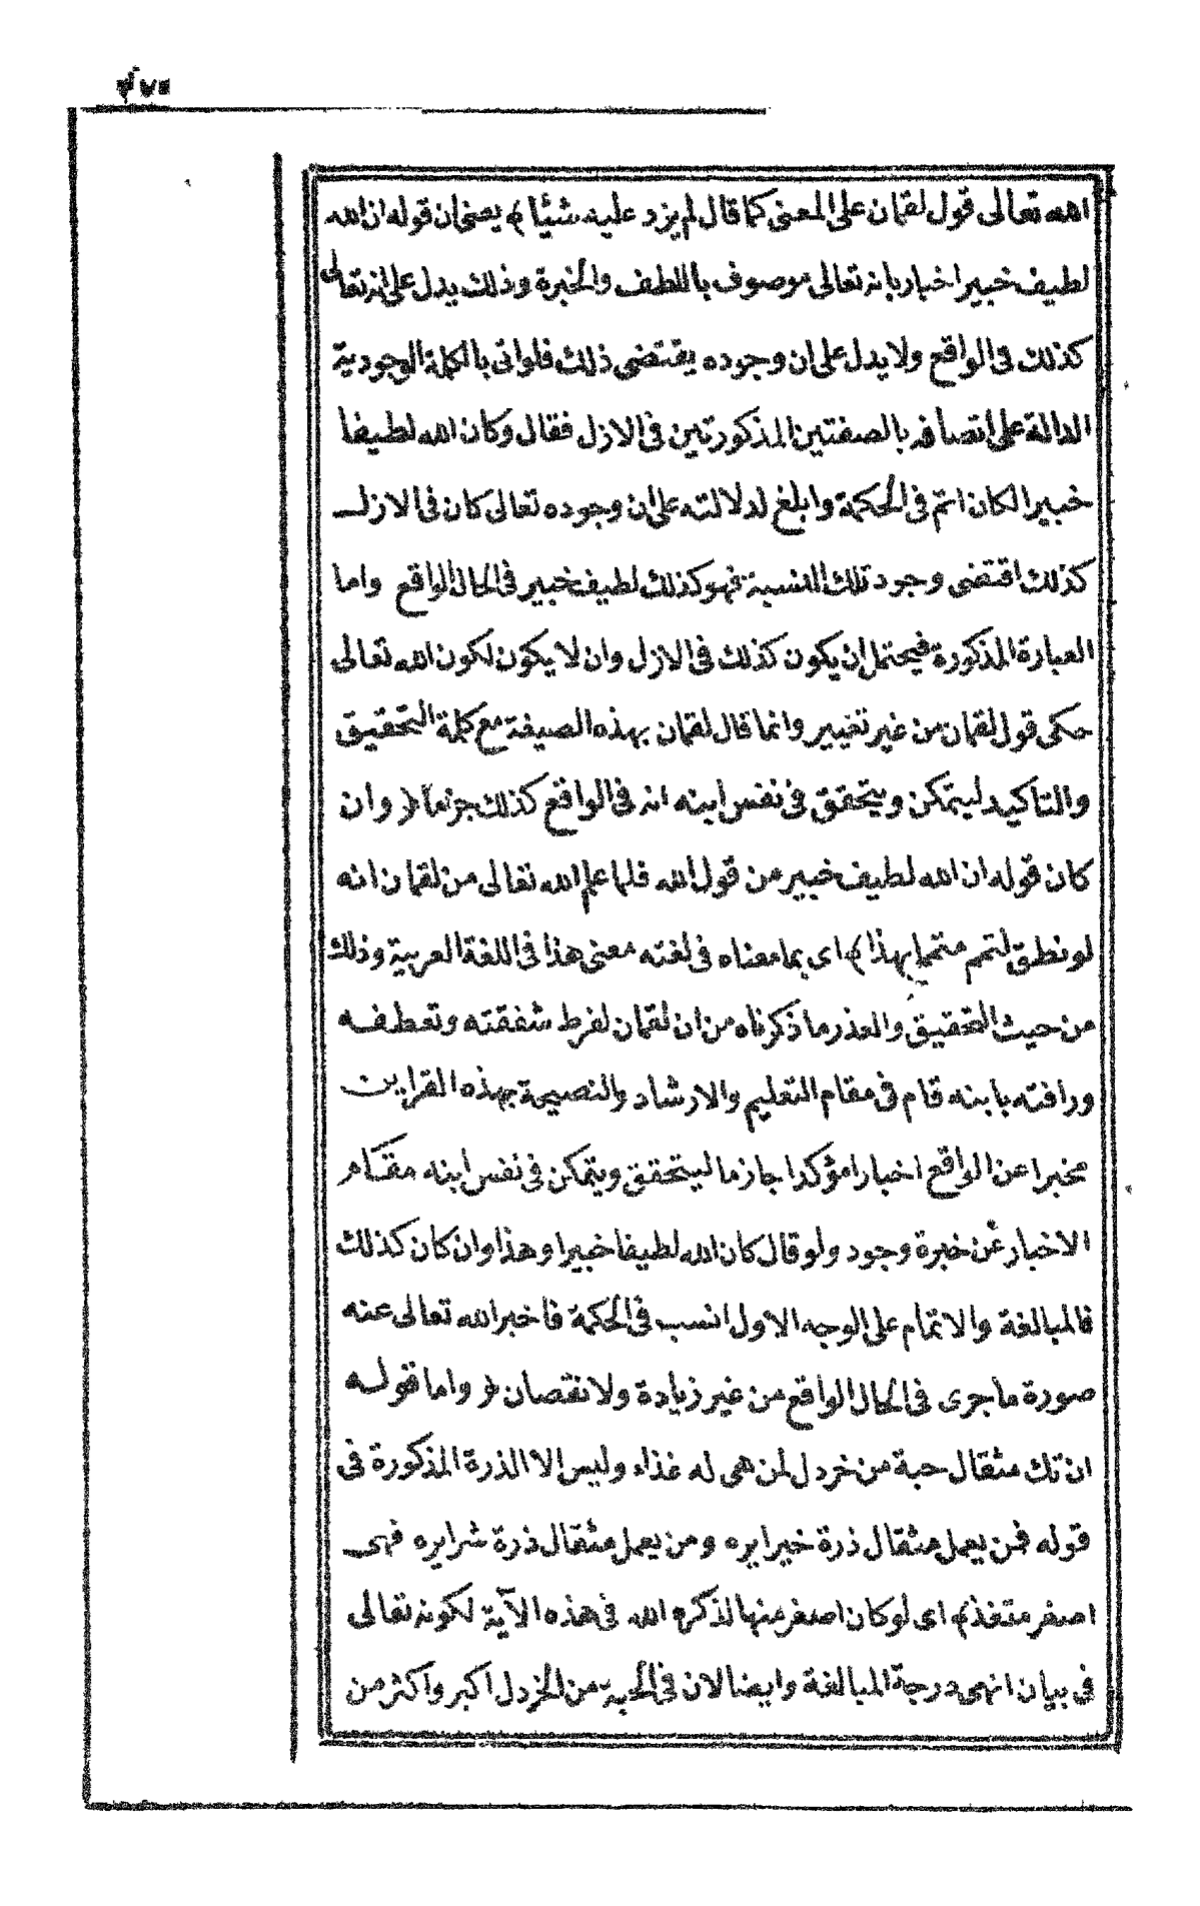 ٣٧٥
الله تعالى قول لقمان على المعنى كما قال لم يزد عليه شيئا﴾ يعنى ان قوله ان الله
لطيف خبير اخبار بانه تعالى موصوف باللطف والخبرة وذلك يدل على انه تعالى
كذلك فى الواقع ولا يدل على ان وجوده يقتضى ذلك فلو اتى بالكلمة الوجودية
الدالة على اتصافه بالصفتين المذكورتين فى الازل فقال وكان الله لطيفا
خبيرا لكان اتم فى الحكمة وابلغ لدلالته على ان وجوده تعالى كان فى الازل
كذلك اقتضى وجود تلك النسبة فهو كذلك لطيف خبير فى الحال الواقع واما
العبارة المذكورة فيحتمل ان يكون كذلك فى الازل وان لا يكون لكون الله تعالى
حكى قول لقمان من غير تغيير وانما قال لقمان بهذه الصيغة مع كلمة التحقيق
والتاكيد ليتمكن ويتحقق فى نفس ابنه انه فى الواقع كذلك جزما ﴿ وان
كان قوله ان الله لطيف خبير من قول الله فلما علم الله تعالى من لقمان انه
لو نطق لتمم متمما بهذا﴾ اى بما معناه فى لغته معنى هذا فى اللغة العربية وذلك
من حيث التحقيق والعذر ما ذكرناه من ان لقمان لفرط شفقته وتعطفه
ورافته بابنه قام فى مقام التعليم والارشاد والنصيحة بهذه القراين
مخبرا عن الواقع اخبارا مؤكدا جازما ليتحقق ويتمكن فى نفس ابنه مقام
الاخبار عن خبرة وجود ولو قال كان الله لطيفا خبيرا وهذا وان كان كذلك
فالمبالغة والاتمام على الوجه الاول انسب فى الحكمة فاخبر الله تعالى عنه
صورة ما جرى فى الحال الواقع من غير زيادة ولا نقصان ﴿ واما قوله
ان تك مثقال حبة من خردل لمن هى له غذاء وليس الا الذرة المذكورة فى
قوله فمن يعمل مثقال ذرة خيرا يره ومن يعمل مثقال ذرة شرا يره فهى
اصغر متغذ﴾ اى لو كان اصغر منها لذكره الله فى هذه الآية لكونه تعالى
فى بيان انهى درجة المبالغة وايضا لان فى الحبة من الخردل اكبر واكثر من